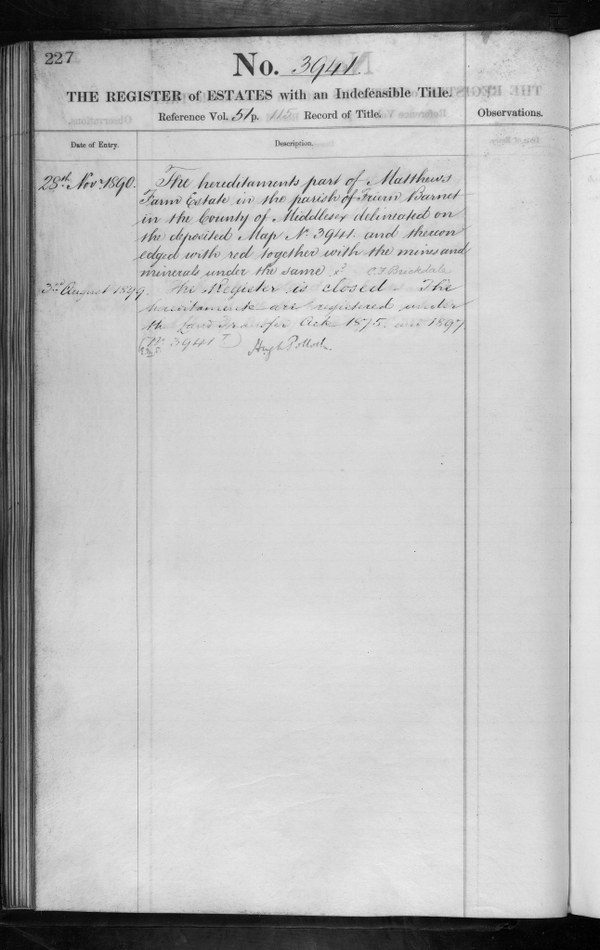 227
No. 3941.
THE REGISTER of ESTATES with an Indefeasible Title.
Reference Vol. 51 p. 115 Record of Title.
Observations.
Date of Entry.
Description.
28th Novr 1890.
The hereditaments part of Matthews
Farm Estate in the parish of Friern Barnet
in the County of Middlesex delineated on
the deposited Map No 3941 and thereon
edged with red together with the mines and
minerals under the same C F Brickdale
3rd August 1899.
The Register is closed. The
hereditaments are registered under
the Land Transfer Acts 1875 and 1897
3941
Hugh Pollock